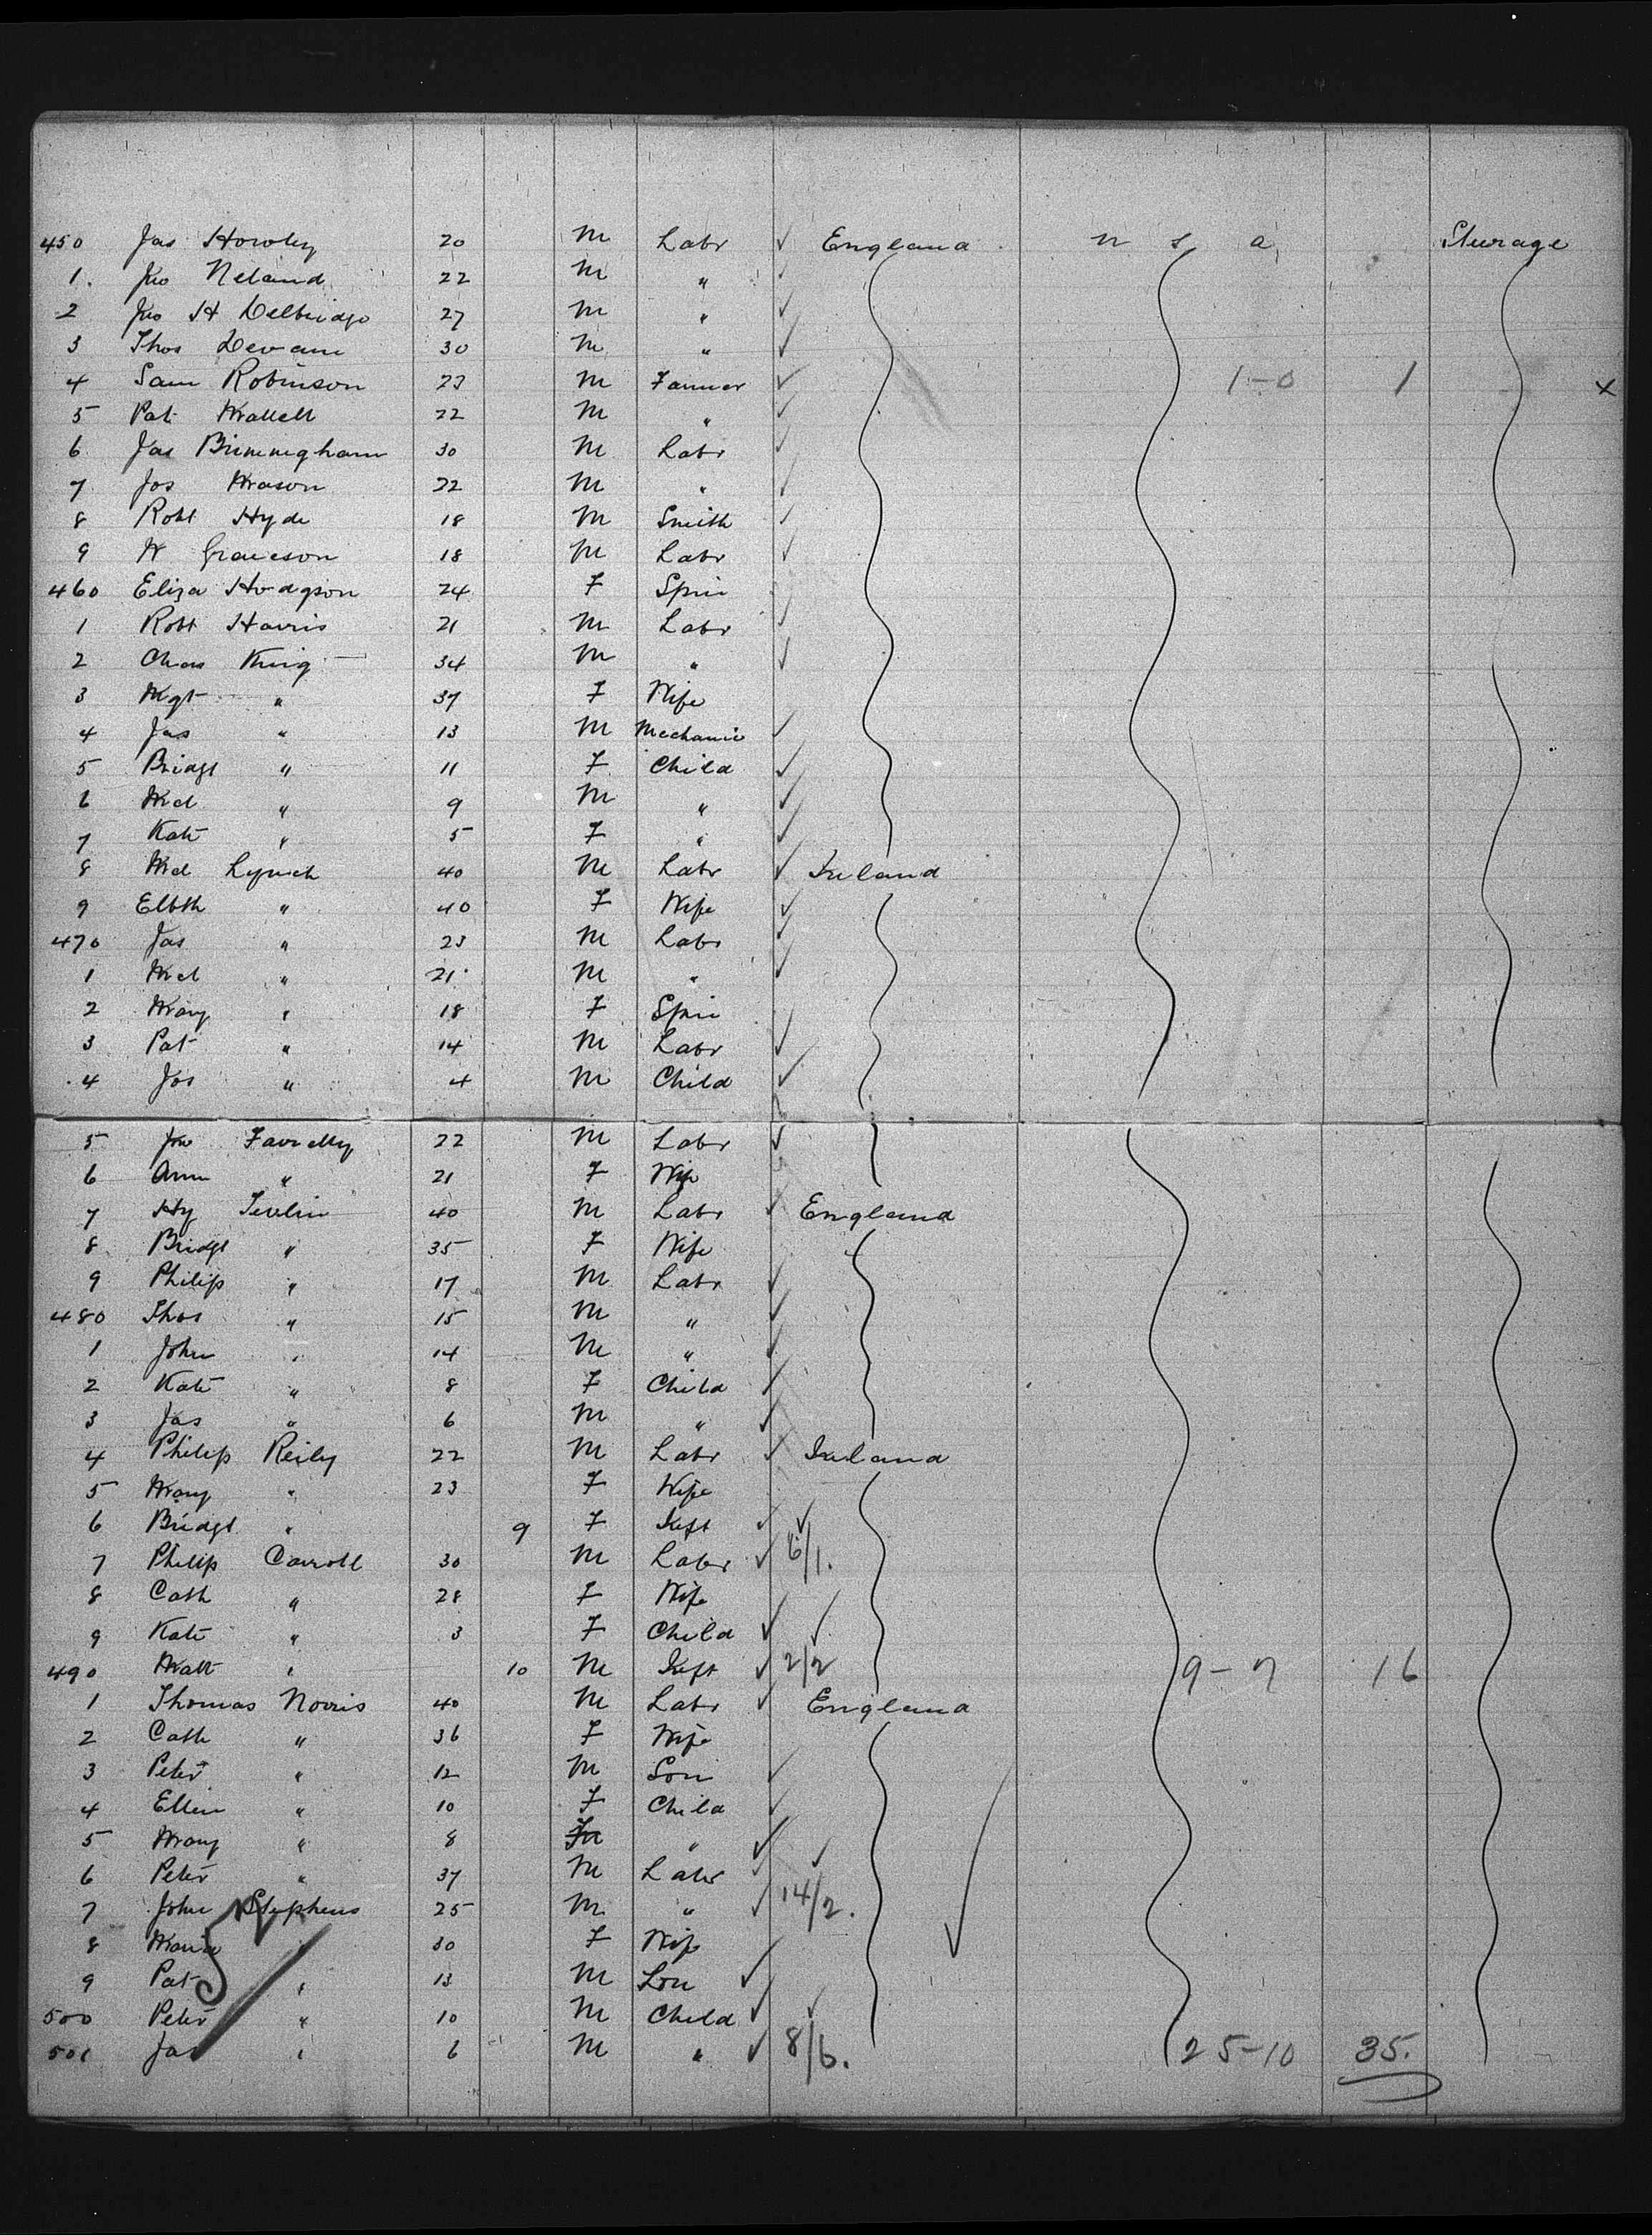 450 Jas Howley 20 M Labr ✓ England n s a Steerage
1. Jno Neland 22 M " ✓
2 Jno H Delbridge 27 M " ✓
3 Thos Devani 30 M " ✓
4 Sam Robinson 23 M Farmer ✓ 1-0 1 x
5 Pat 22 M " ✓
6 Jas Birmingham 30 M Labr ✓
7 Jos Mason 22 M " ✓
8 Robt Hyde 18 M Smith ✓
9 W Graveson 18 M Labr ✓
460 Eliza Hodgson 24 F Spin
1 Robt Harris 21 M Labr ✓
2 Chas King 34 M " ✓
3 Mgt " 37 F Wife
4 Jas " 13 M Mechanic ✓
5 Bridgt " 11 F Child ✓
6 Ml " 9 M " ✓
7 Kate " 5 F " ✓
8 Ml Lynch 40 M Labr ✓ Ireland
9 Elbth " 40 F Wife ✓
470 Jas " 23 M Labr ✓
1 Ml " 21 M " ✓
2 Mary " 18 F Spin
3 Pat " 14 M Labr ✓
4 Jos " 4 M Child ✓
5 Jno Farrelly 22 M Labr ✓
6 Ann " 21 F Wife
7 Hy Tevlin 40 M Labr ✓ England
8 Bridgt " 35 F Wife
9 Philip " 17 M Labr ✓
480 Thos " 15 M " ✓
1 John " 14 M " ✓
2 Kate " 8 F Child ✓
3 Jas " 6 M " ✓
4 Philip Reily 22 M Labr ✓ Ireland
5 Mary " 23 F Wife
6 Bridgt " 9 F Inft ✓ ✓
7 Philip Carroll 30 M Labr ✓ 6/1.
8 Cath " 28 F Wife
9 Kate " 3 F Child ✓ ✓
490 Matt " 10 M Inft ✓ 2/2 9-7 16
1 Thomas Norris 40 M Labr ✓ England
2 Cath " 36 F Wife
3 Peter " 12 M Son ✓
4 Ellen " 10 F Child ✓
5 Mary " 8 F " ✓ ✓
6 Peter " 37 M Labr ✓
7 John Stephens 25 M " ✓ 14/2.
8 Maria " 30 F Wife
9 Pat " 13 M Son ✓
500 Peter " 10 M Child ✓ ✓
501 Jas " 6 M " ✓ 8/6. 25-10 35.